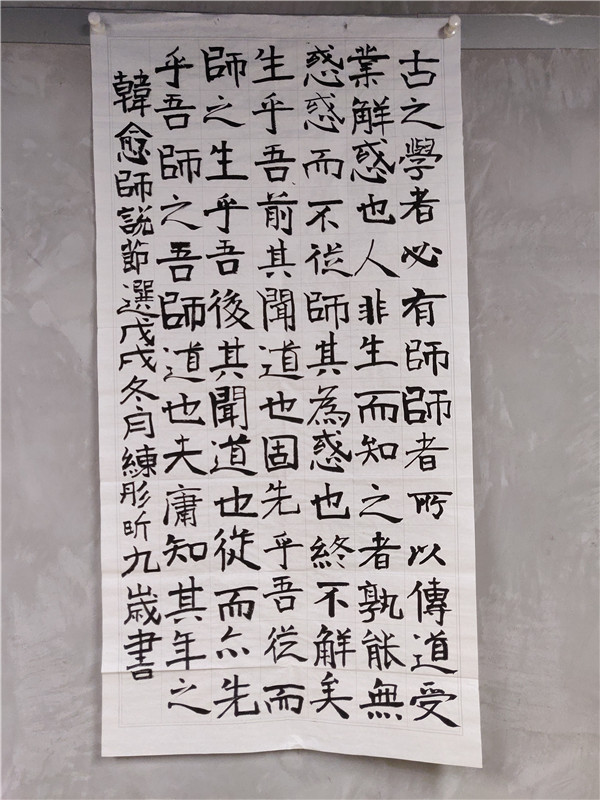 古之學者必有師師者所以傳道受
業解惑也人非生而知之者孰能無
惑惑而不從師其為惑也終不解矣
生乎吾前其聞道也固先乎吾從而
師之生乎吾後其聞道也從而亦先
乎吾師之吾師道也夫庸知其年之
韓愈師說節選戊戌冬月練彤昕九歲書